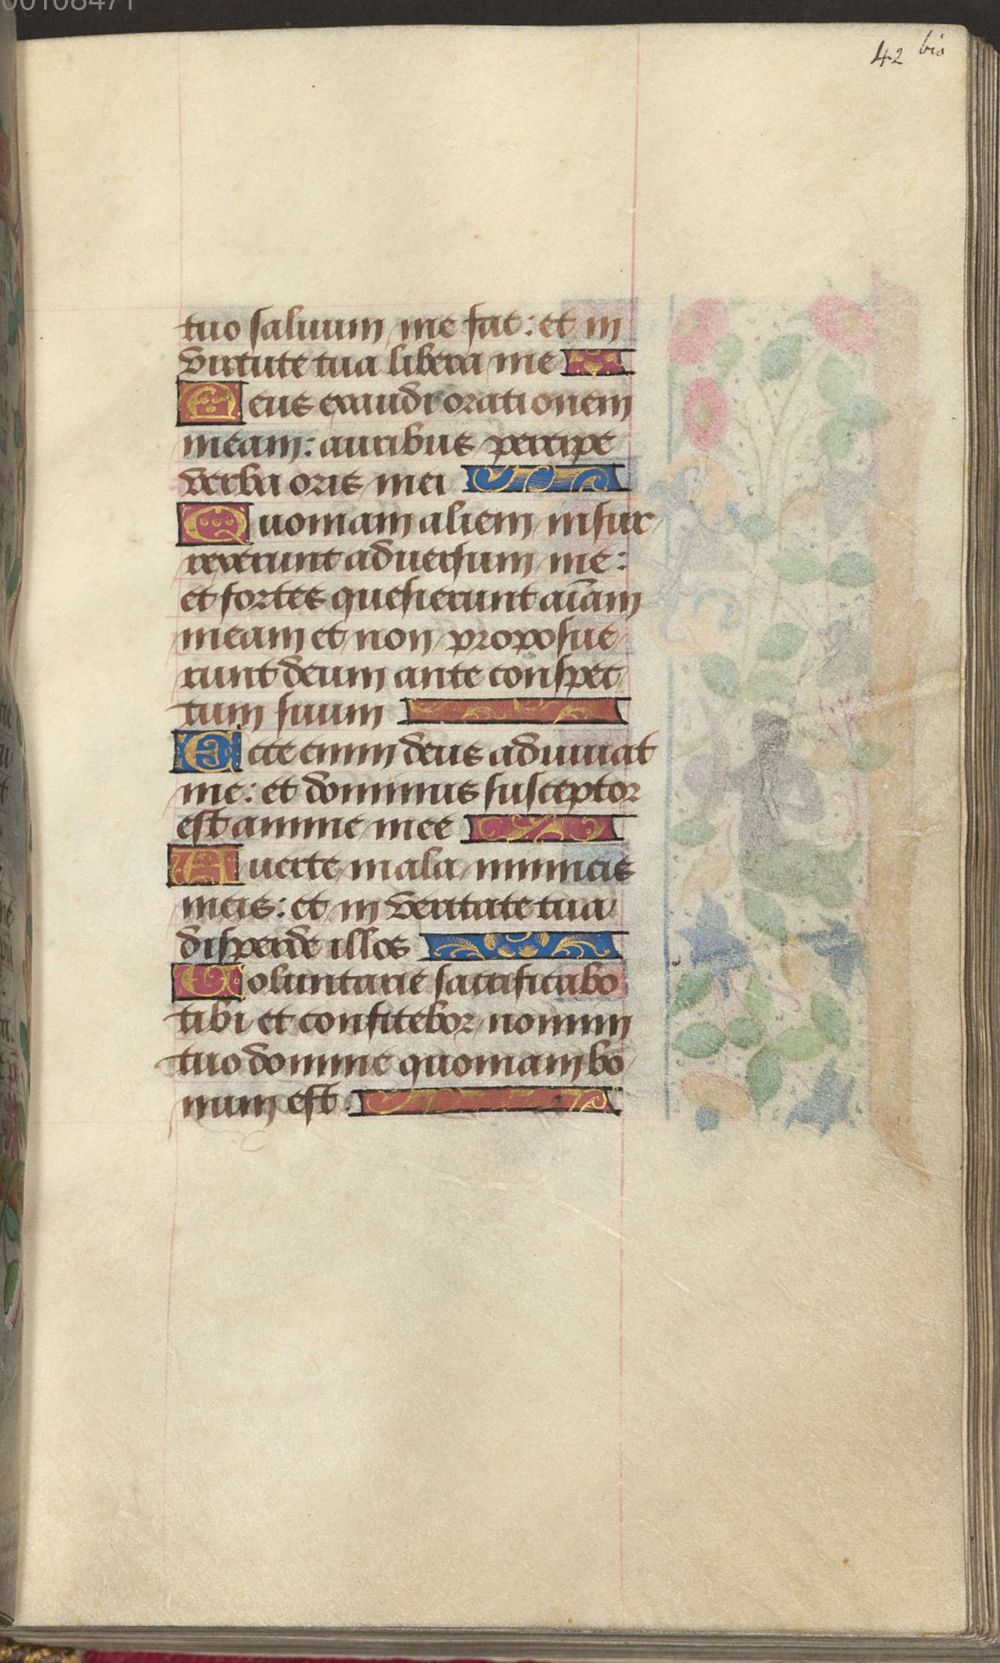 00108471
42 bis
tuo saluum me fac: et in
virtute tua libera me
Deus exaudi orationem
meam: auribus percipe
verba oris mei
Quoniam alieni insur
rexerunt adversum me:
et fortes quesierunt aīam
meam et non proposue
runt deum ante conspec
tum suum
Ecce enim deus adiuvat
me: et dominus susceptor
est anime mee
Averte mala inimicis
meis: et in veritate tua
disperde illos
Voluntarie sacrificabo
tibi et confitebor nomini
tuo domine quoniam bo
num est.